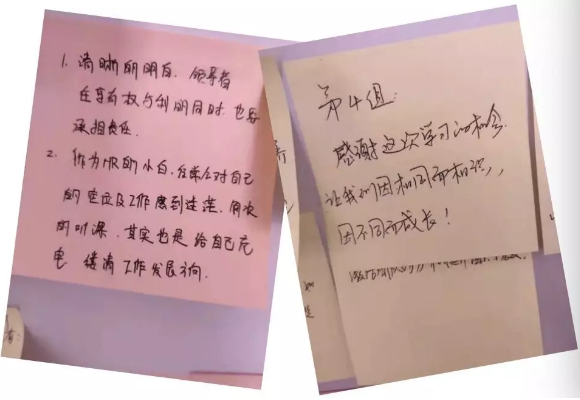 1. 清晰的明白，领导者
在享有权与利明同时，也要
承担责任。
2. 作为HR的小白，在单位对自己
的定位及工作感到迷茫，每次
的听课，其实也是给自己充
电，缕清工作发展方向.
第4组：
感谢这次学习的机会
让我们因相同而相识，
因不同而成长！
有：